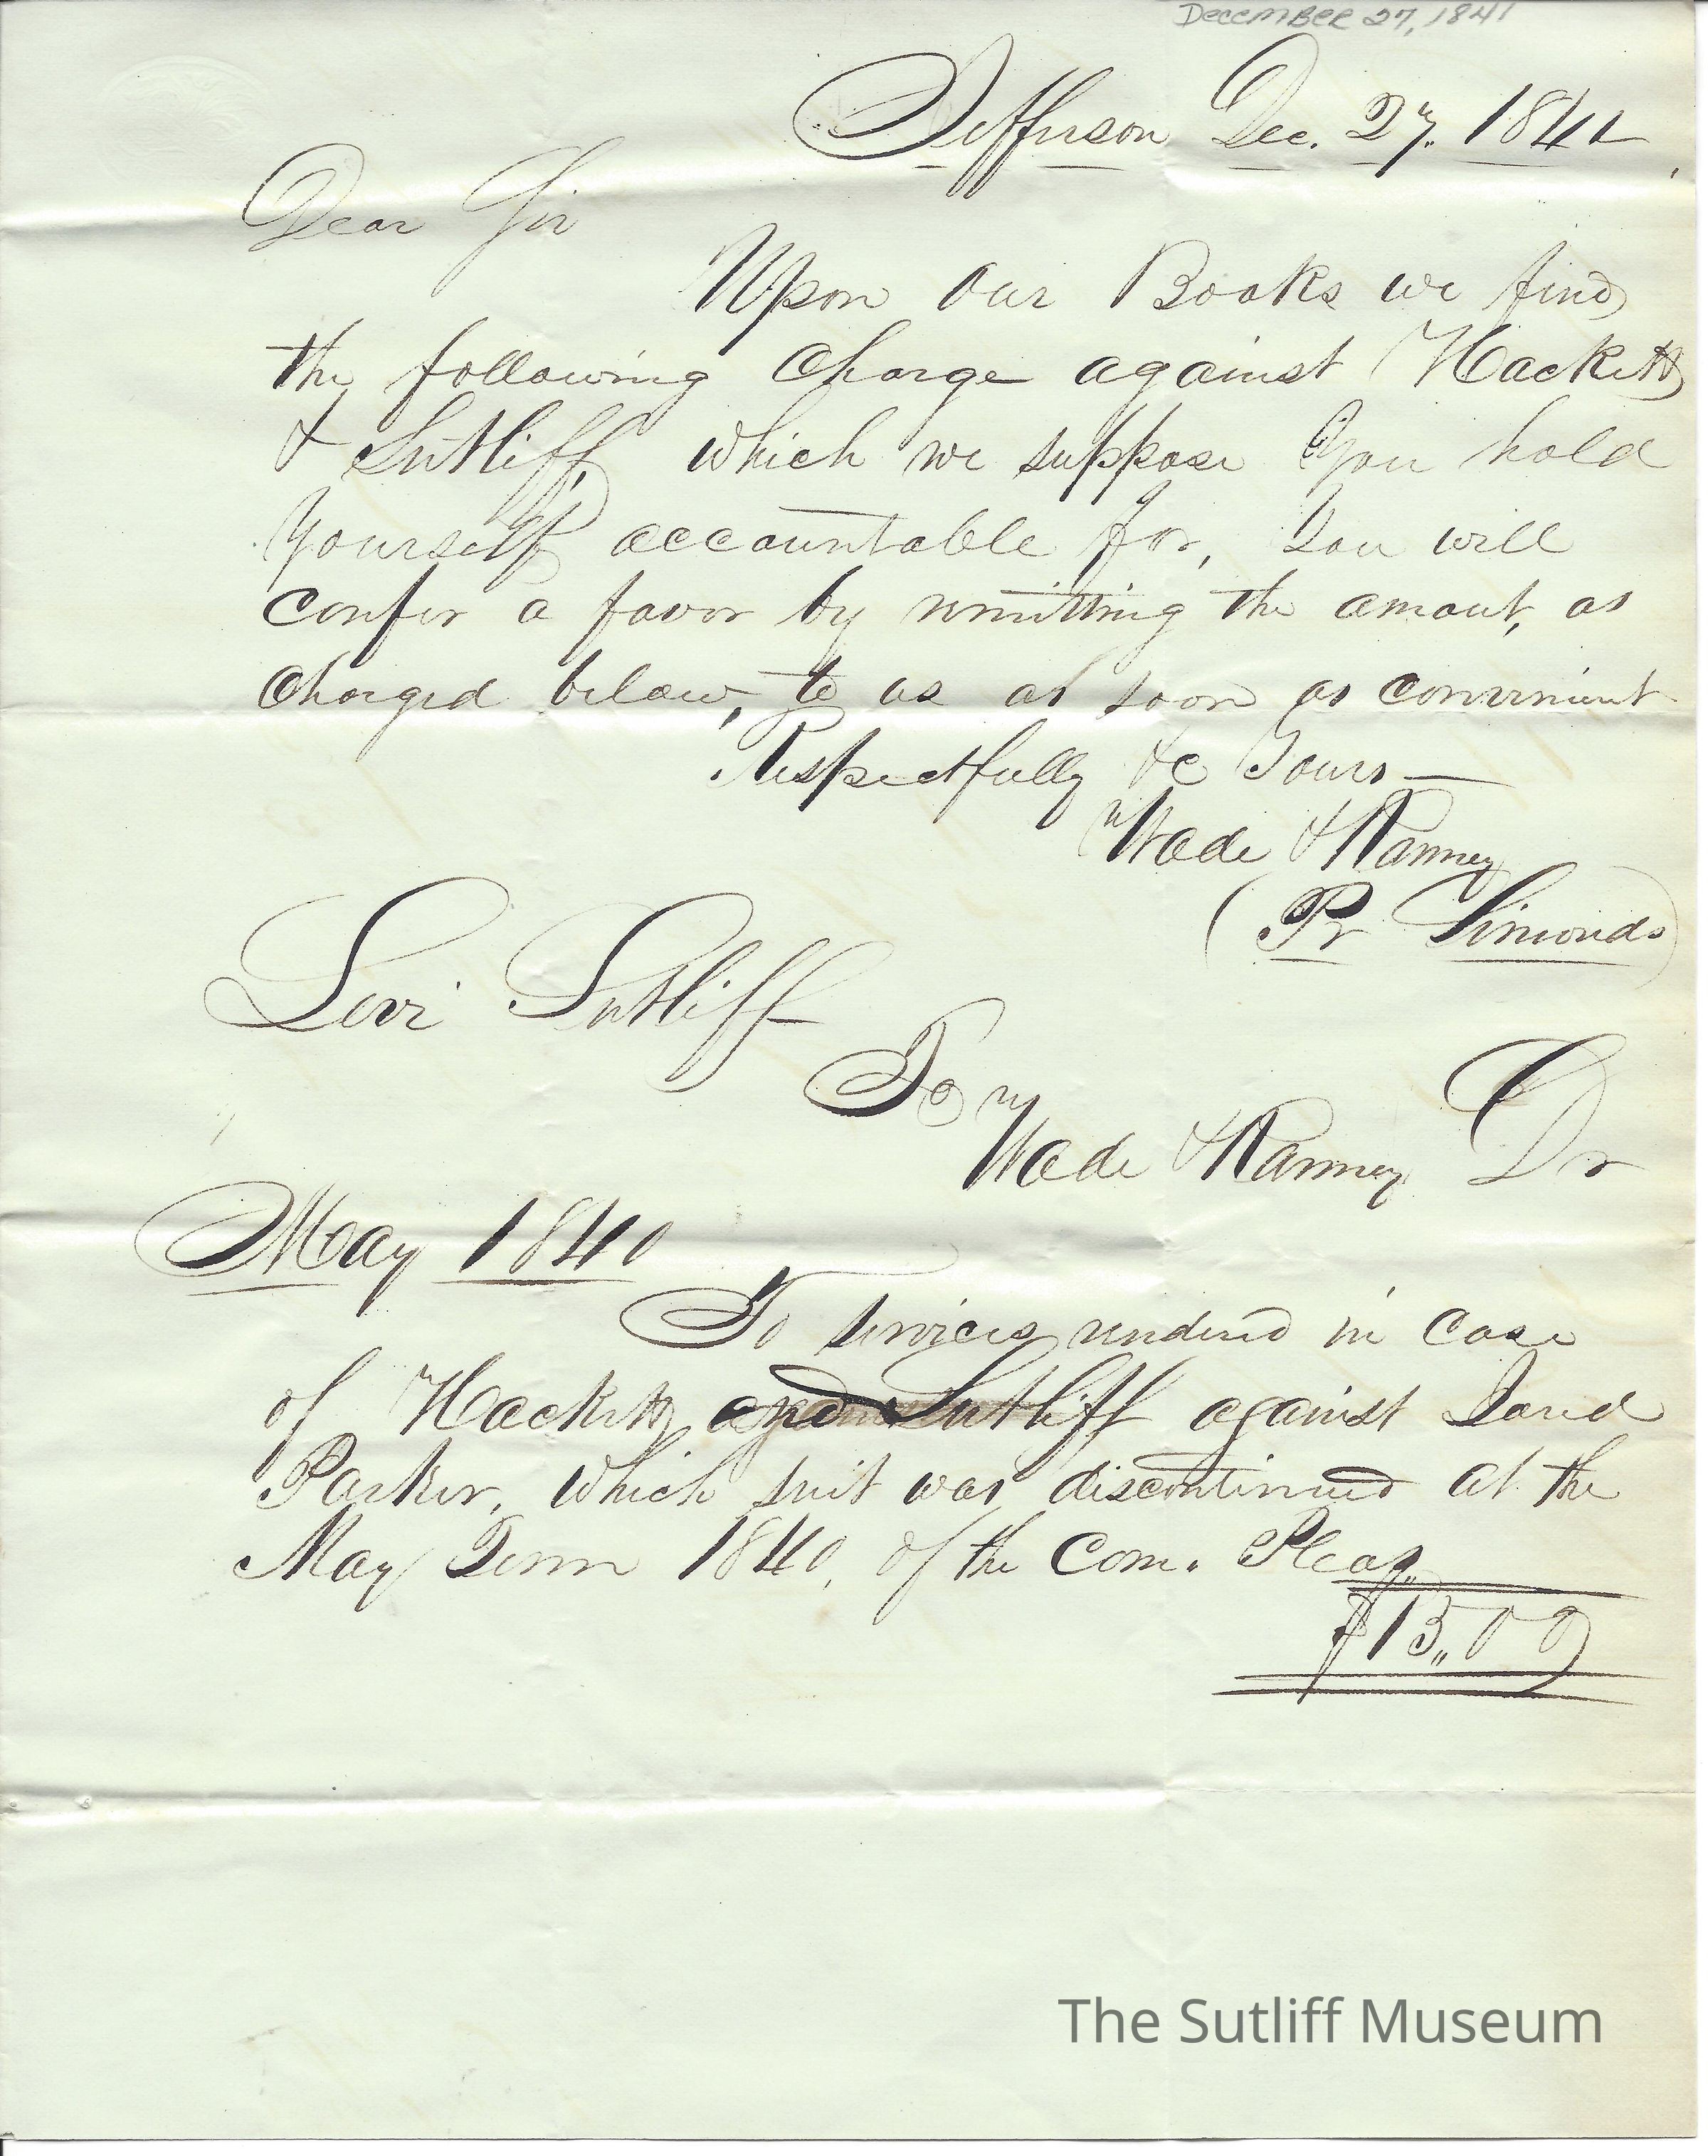 DECEMBER 27, 1841
Jefferson Dec. 27. 1841
Dear Sir
Upon our Books we find
the following Charge against Hackett
& Sutliff, which we suppose you hold
yourself accountable for, You will
confer a favor by remitting the amout, as
Charged below, to us as soon as convenient
Respectfully &c Yours —
Wade & Ranney
(Pr Simonds)
Levi Sutliff
To
Wade & Ranney Dr
May 1840
To services rendered in case
of Hackett and Sutliff against
Parker, which suit was discontinued at the
May Term 1840, of the Com. Pleas,
$15,,00
The Sutliff Museum